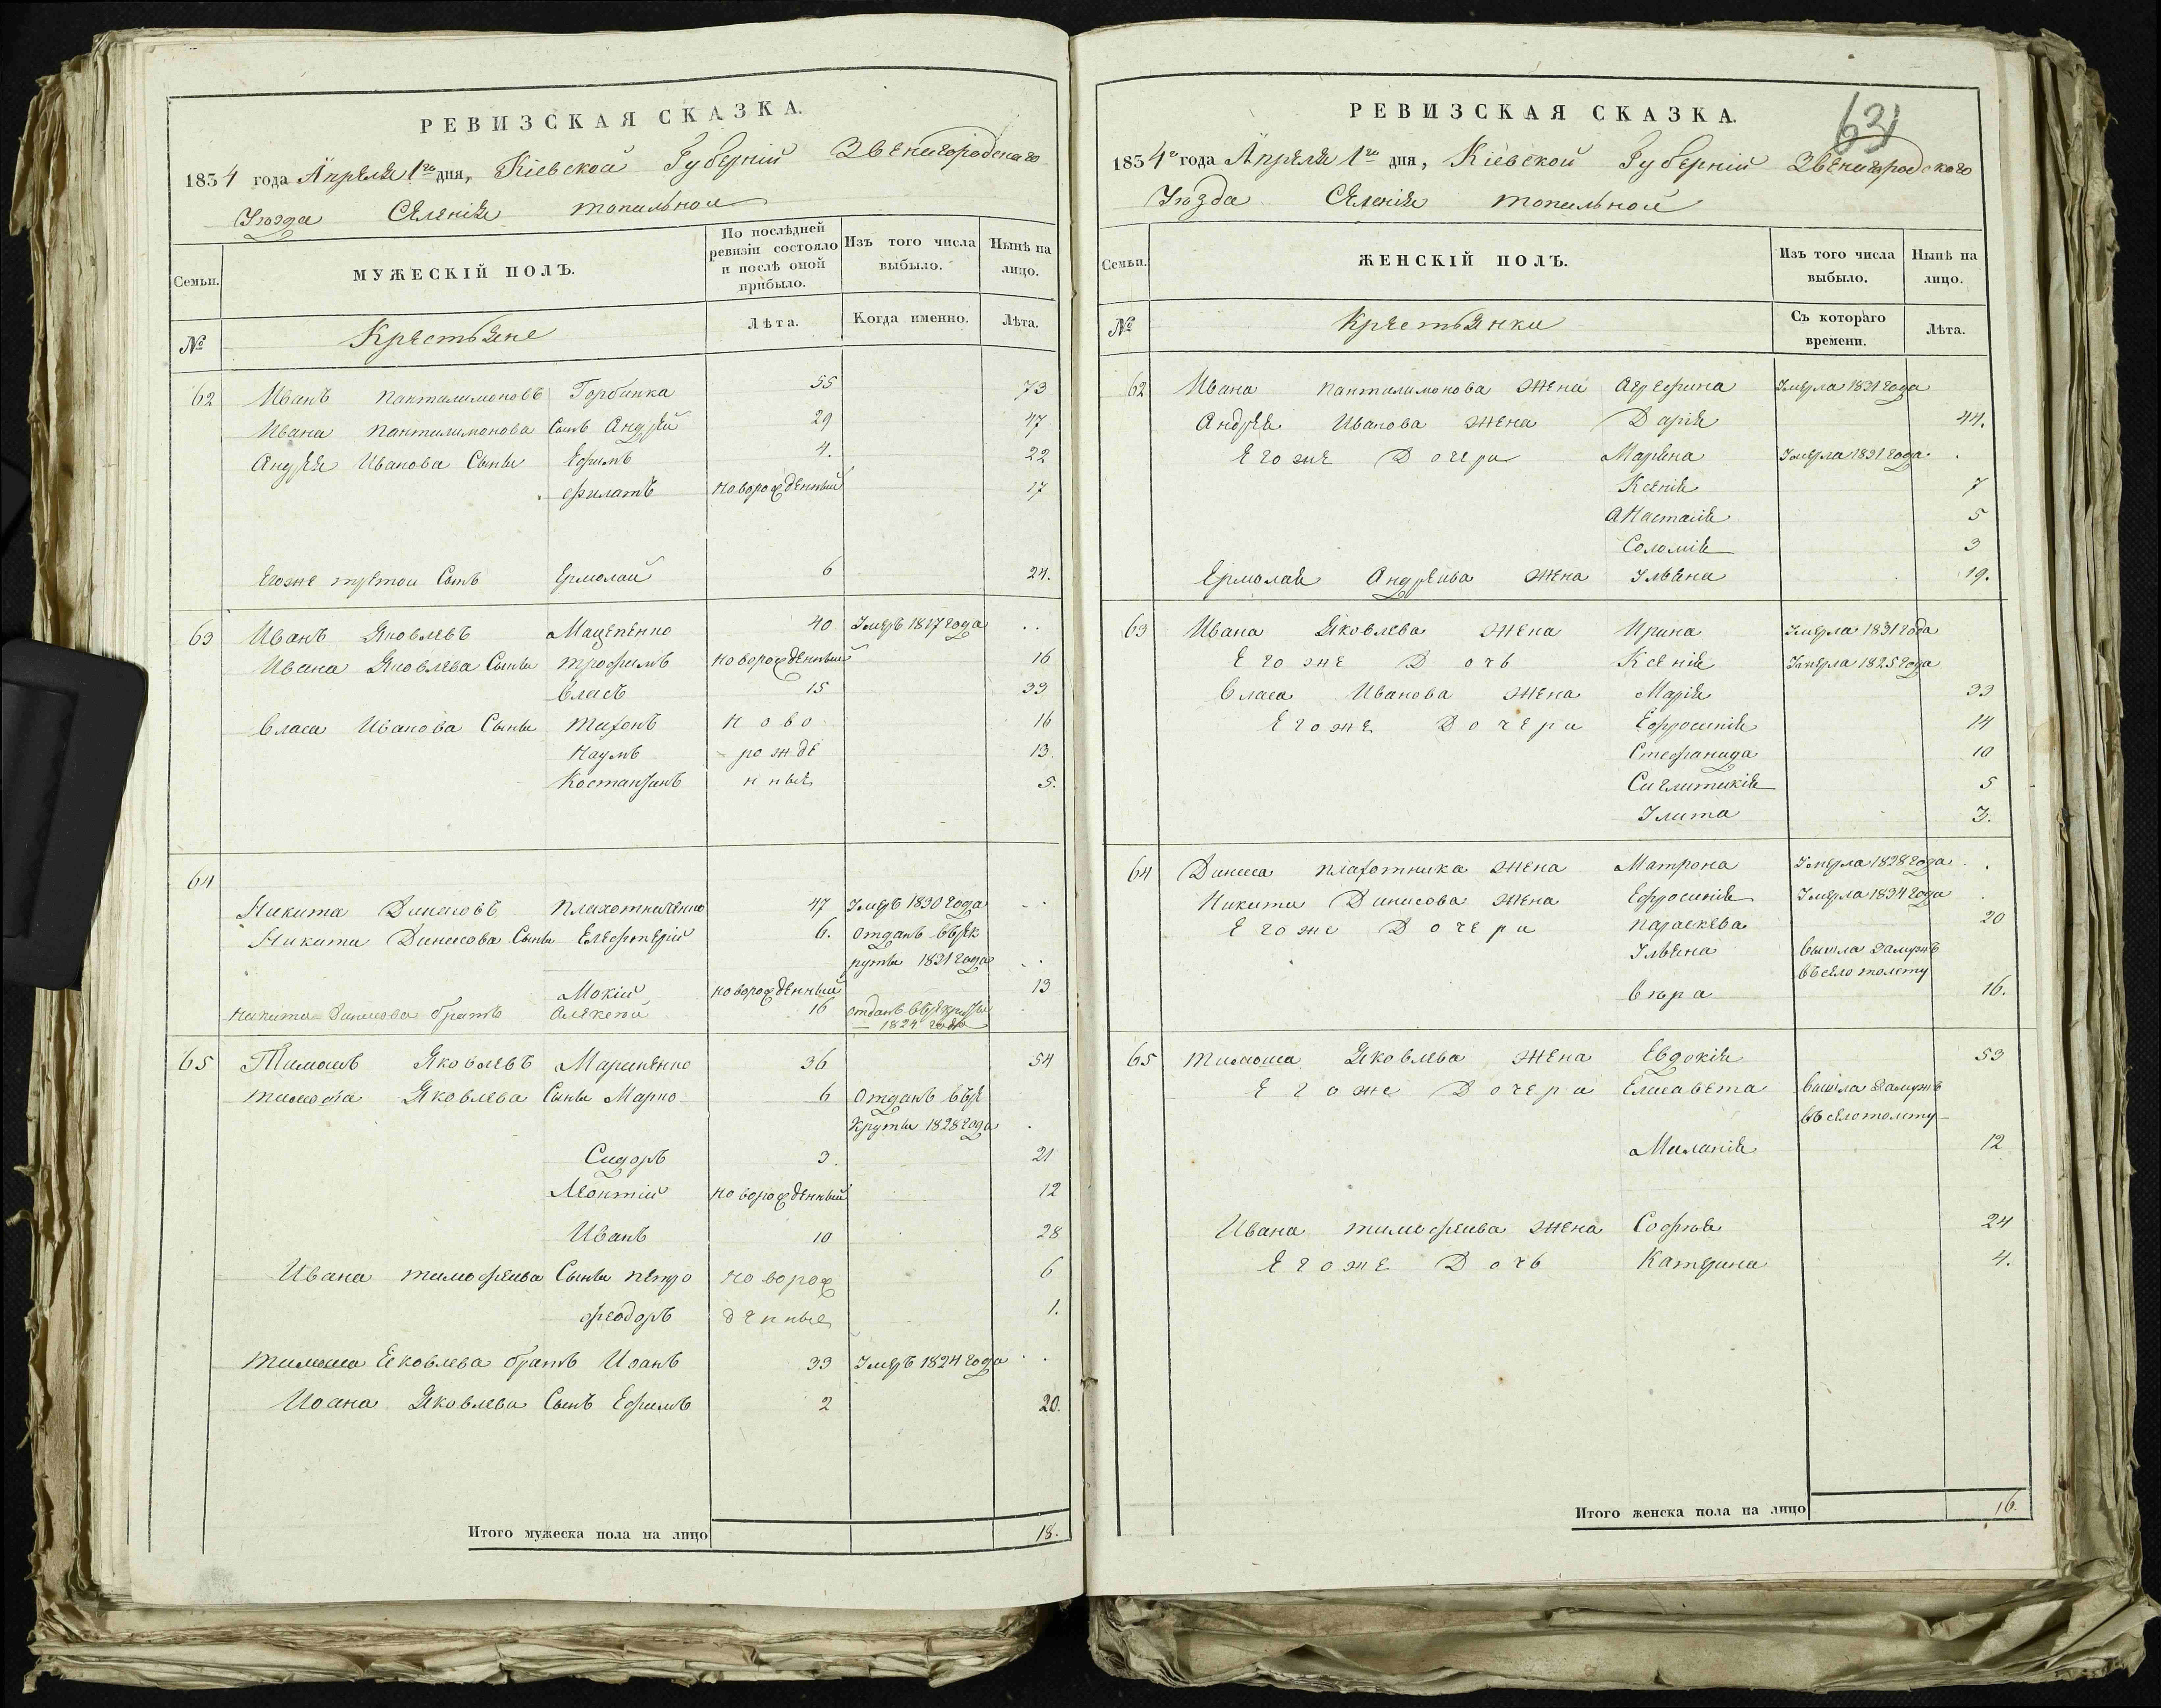 РЕВИЗСКАЯ СКАЗКА.
1834 года Апреля 1го дня, Кіевской Губерніи Звенигородскаго
Уѣзда Селенія топильной
Семьи. МУЖЕСКІЙ ПОЛЪ. По послѣдней ревизіи состояло и послѣ оной прибыло. Изъ того числа выбыло. Нынѣ на лицо.
№ Крестьяне Лѣта. Когда именно. Лѣта.
62 Иванъ пантилимоновъ Горбинка 55 73
Ивана пантилимонова Сынъ Андрей 29 47
Андрея Иванова Сыны Ефимъ 4. 22
филатъ новорожденный 17
Егоже третой Сынъ Ермолай 6 24.
63 Иванъ Яковлевъ Мацепенко 40 Умеръ 1817 года
Ивана Яковлева Сыны трофимъ новорожденный 16
власъ 15 33
власа Иванова Сыны тихонъ ново 16
наумъ рожде 13.
Костантинъ нные 5.
64
Никита Динисовъ плахотниченко 47 Умеръ 1830 года
Никити Динисова Сыны Елефтерій 6. Отданъ въ рек
руты 1831 года
Мокій новорожденный 13
никити Динисова братъ Алексей 16 отданъ въ рекруты
1824 года
65 Тимошъ Яковлевъ Мариненко 36 54
тимоша Яковлева Сыны Марко 6 Отданъ въ ре
круты 1828 года
Сидоръ 3. 21
Леонтій новорожденный 12
Иванъ 10 28
Ивана тимофеива Сыны петро новорож 6
феодоръ денные 1.
тимоша Яковлева братъ Иоанъ 33 Умеръ 1824 года
Иоана Яковлева Сынъ Ефимъ 2 20.
Итого мужеска пола на лицо 18.
РЕВИЗСКАЯ СКАЗКА.
63
1834го года Апреля 1го дня, Кіевской Губерніи Звенигородского
Уѣзда Селенія топильной
Семьи. ЖЕНСКІЙ ПОЛЪ. Изъ того числа выбыло. Нынѣ на лицо.
№ Крестьянки Съ котораго времени. Лѣта.
62 Ивана пантилимонова жена Агрефина Умерла 1831 года
Андрея Иванова жена Дарія 44.
Егоже Дочери Марина Умерла 1831 года
Ксенія 7
Анастасія 5
Соломія 3
Ермолая Андреива жена Ульяна 19.
63 Ивана Яковлева жена Ирина Умерла 1831 года
Егоже Дочь Ксенія Умерла 1825 года
власа Иванова жена Марія 33
Егоже Дочери Ефросинія 14
Стефанида 10
Сиглитикія 5
Улита 3.
64 Диниса плахотника жена Матрона Умерла 1828 года
Никити Динисова жена Ефросинія Умерла 1834 года
Егоже Дочери параскева 20
Ульяна вышла замужъ
въ село толсту
вѣра 16.
65 тимоша Яковлева жена Евдокія 53
Егоже Дочери Елисавета вышла замужъ
въ село толсту
Миланія 12
Ивана тимофеива жена Софія 24
Егоже Дочь Катерина 4.
Итого женска пола на лицо 16.